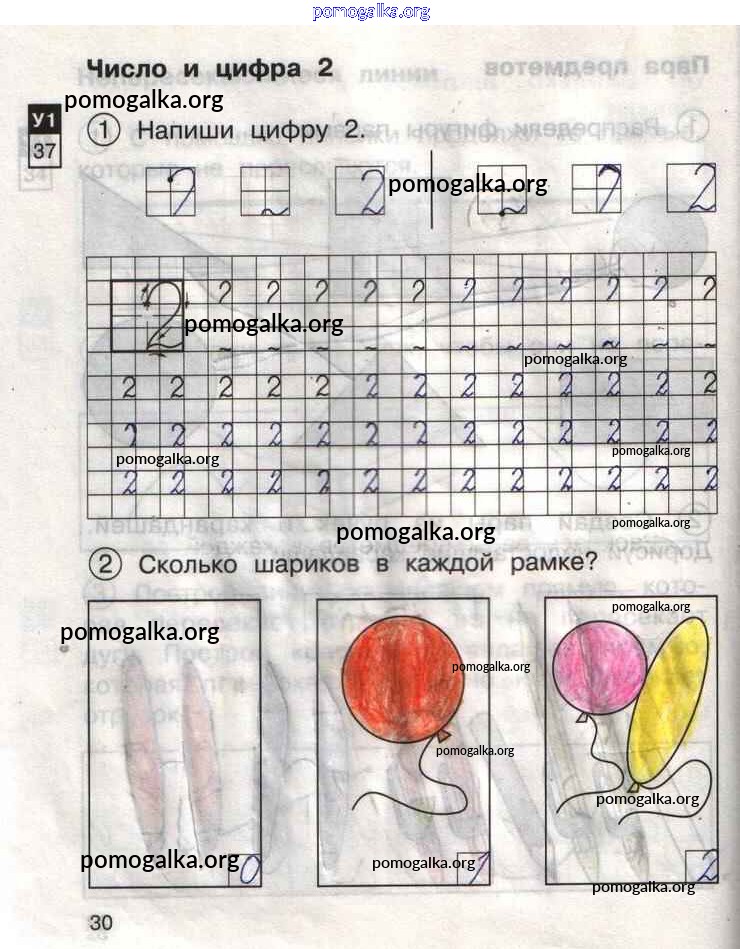 pomogalka.org
Число и цифра 2
pomogalka.org
У1
37
1 Напиши цифру 2.
2 pomogalka.org 2
2 pomogalka.org
pomogalka.org
2 2 2 2 2 2 2 2 2 2 2 2 2
2 2 2 2 2 2 2 2 2 2 2 2 2
pomogalka.org pomogalka.org
2 2 2 2 2 2 2 2 2 2 2 2 2
pomogalka.org pomogalka.org
2 Сколько шариков в каждой рамке?
pomogalka.org
pomogalka.org
pomogalka.org
pomogalka.org
pomogalka.org
pomogalka.org 0 pomogalka.org 1 2
pomogalka.org
30